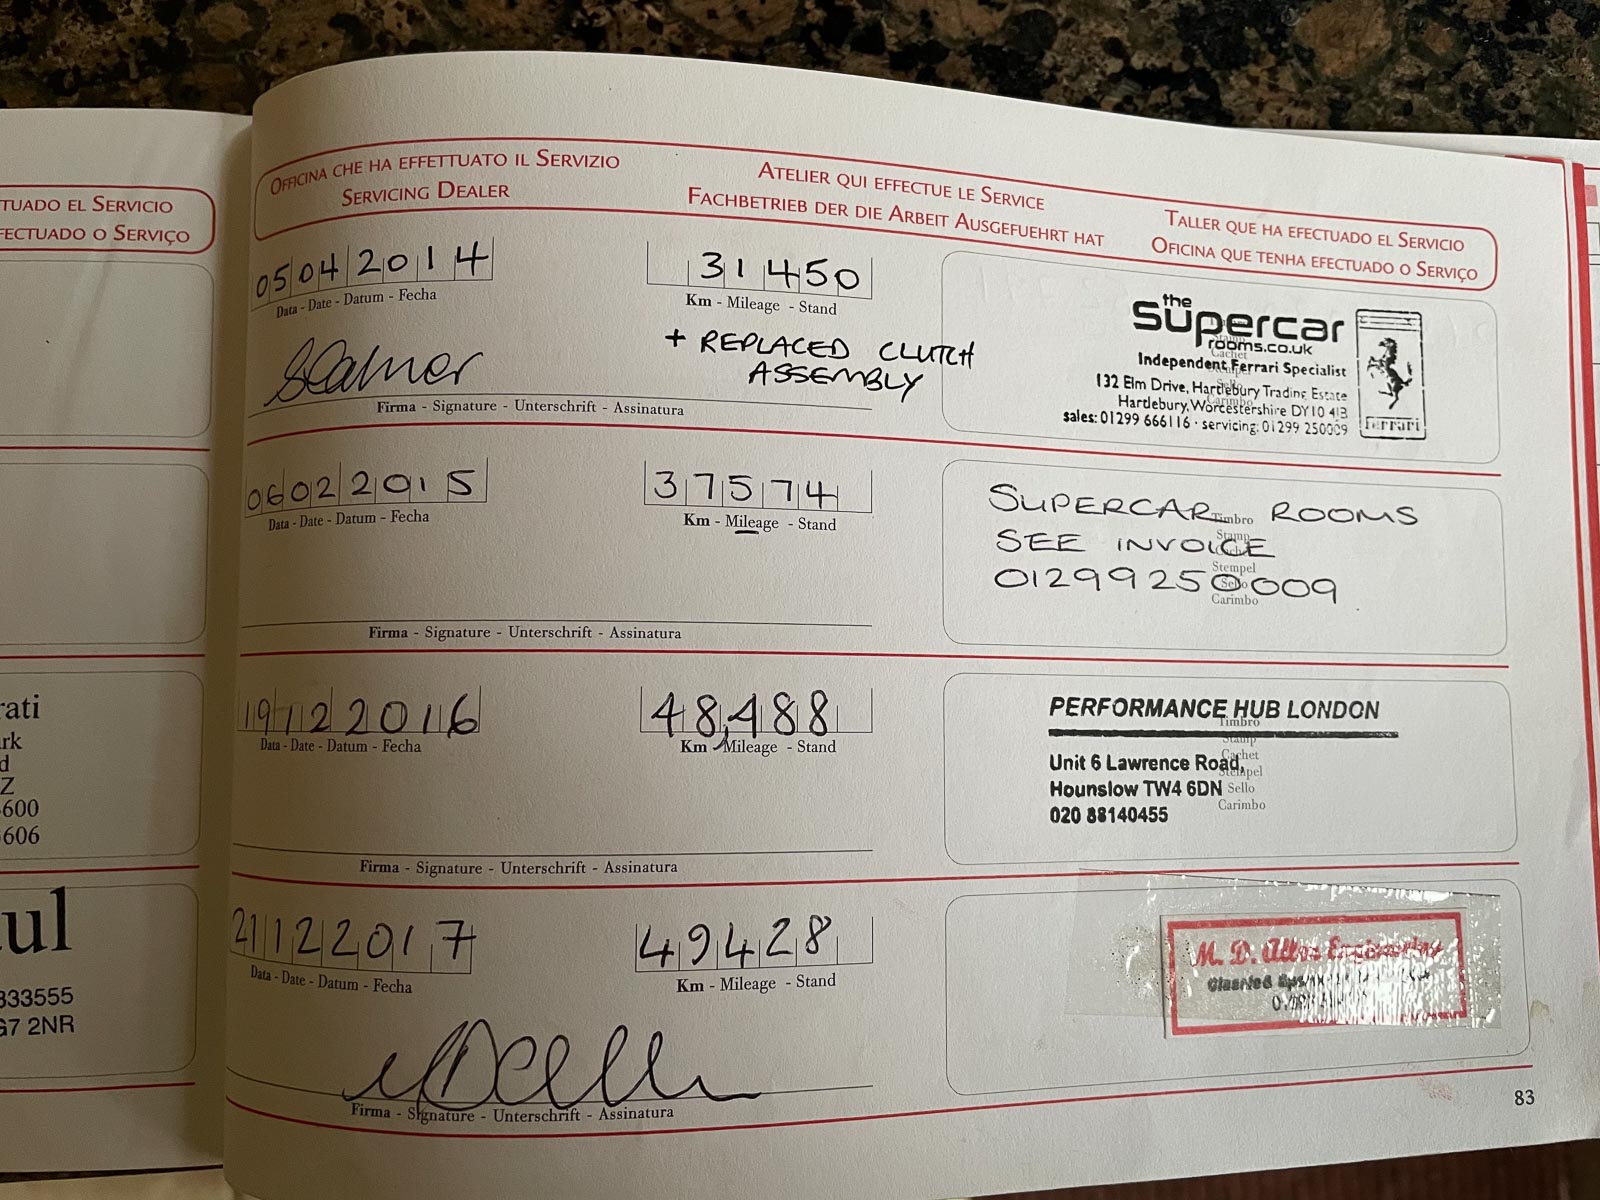 TUADO EL SERVICIO
FECTUADO O SERVIÇO
rati
rk
d
Z
600
606
ul
333555
G7 2NR
OFFICINA CHE HA EFFETTUATO IL SERVIZIO
SERVICING DEALER
ATELIER QUI EFFECTUE LE SERVICE
FACHBETRIEB DER DIE ARBEIT AUSGEFUEHRT HAT
TALLER QUE HA EFECTUADO EL SERVICIO
OFICINA QUE TENHA EFECTUADO O SERVIÇO
05042014
Data - Date - Datum - Fecha
31450
Km - Mileage - Stand
+ REPLACED CLUTCH
ASSEMBLY
Firma - Signature - Unterschrift - Assinatura
the
Supercar
rooms.co.uk
Cachet
Independent Ferrari Specialist
132 Elm Drive, Hartlebury Trading Estate
Carimbo
Hartlebury, Worcestershire DY10 4JB
sales: 01299 666116 · servicing: 01299 250009
Ferrari
06022015
Data - Date - Datum - Fecha
37574
Km - Mileage - Stand
Firma - Signature - Unterschrift - Assinatura
SUPERCAR ROOMS
Timbro
Stamp
SEE INVOICE
Cachet
Stempel
01299250009
Sello
Carimbo
19122016
Data - Date - Datum - Fecha
48,488
Km - Mileage - Stand
Firma - Signature - Unterschrift - Assinatura
PERFORMANCE HUB LONDON
Timbro
Stamp
Cachet
Unit 6 Lawrence Road,
Stempel
Hounslow TW4 6DN
Sello
Carimbo
020 88140455
21122017
Data - Date - Datum - Fecha
49428
Km - Mileage - Stand
Firma - Signature - Unterschrift - Assinatura
M. D. Engineering
83